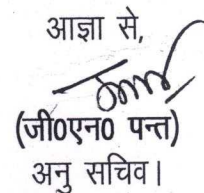 आज्ञा से,
(जी0एन0 पन्त)
अनु सचिव।